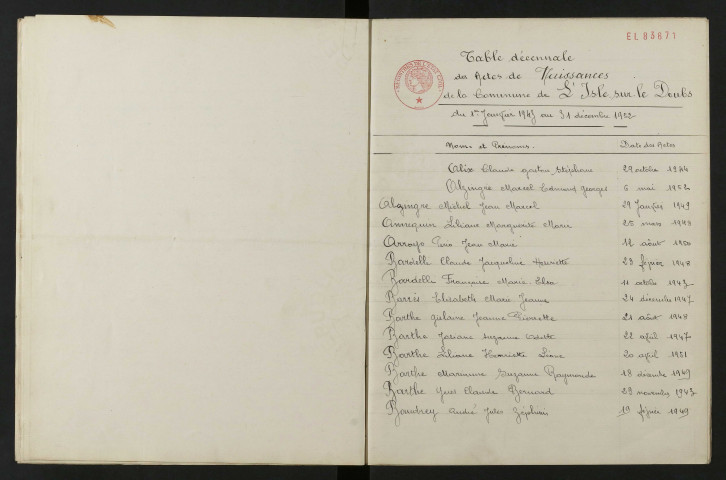 EL83671
Table décennale
des Actes de Naissances
de la Commune de L'Isle sur le Doubs
du 1er Janvier 1943 au 31 décembre 1952
Noms et Prénoms. Date des Actes
Alix Claude gaston Stéphane 29 octobre 1944
Alzingre Marcel Edmond georges 6 mai 1952
Alzingre Michel Jean Marcel 29 Janvier 1949
Liliane Marguerite Marie 25 mars 1943
Arroyo Jean Marie 12 août 1950
Bardelli Claude Jacqueline Henriette 23 février 1948
Bardelli Françoise Marie Elsa 11 octobre 1943
Barrès Elisabeth Marie Jeanne 24 décembre 1947
Barthe Jeanne Pierrette 21 août 1948
Barthe Josiane Suzanne Odette 22 avril 1947
Barthe Liliane Henriette 20 avril 1951
Barthe Marianne Suzanne Raymonde 18 décembre 1949
Barthe Yves Claude Bernard 29 novembre 1943
Baudrey André Jules Zéphirin 19 février 1949